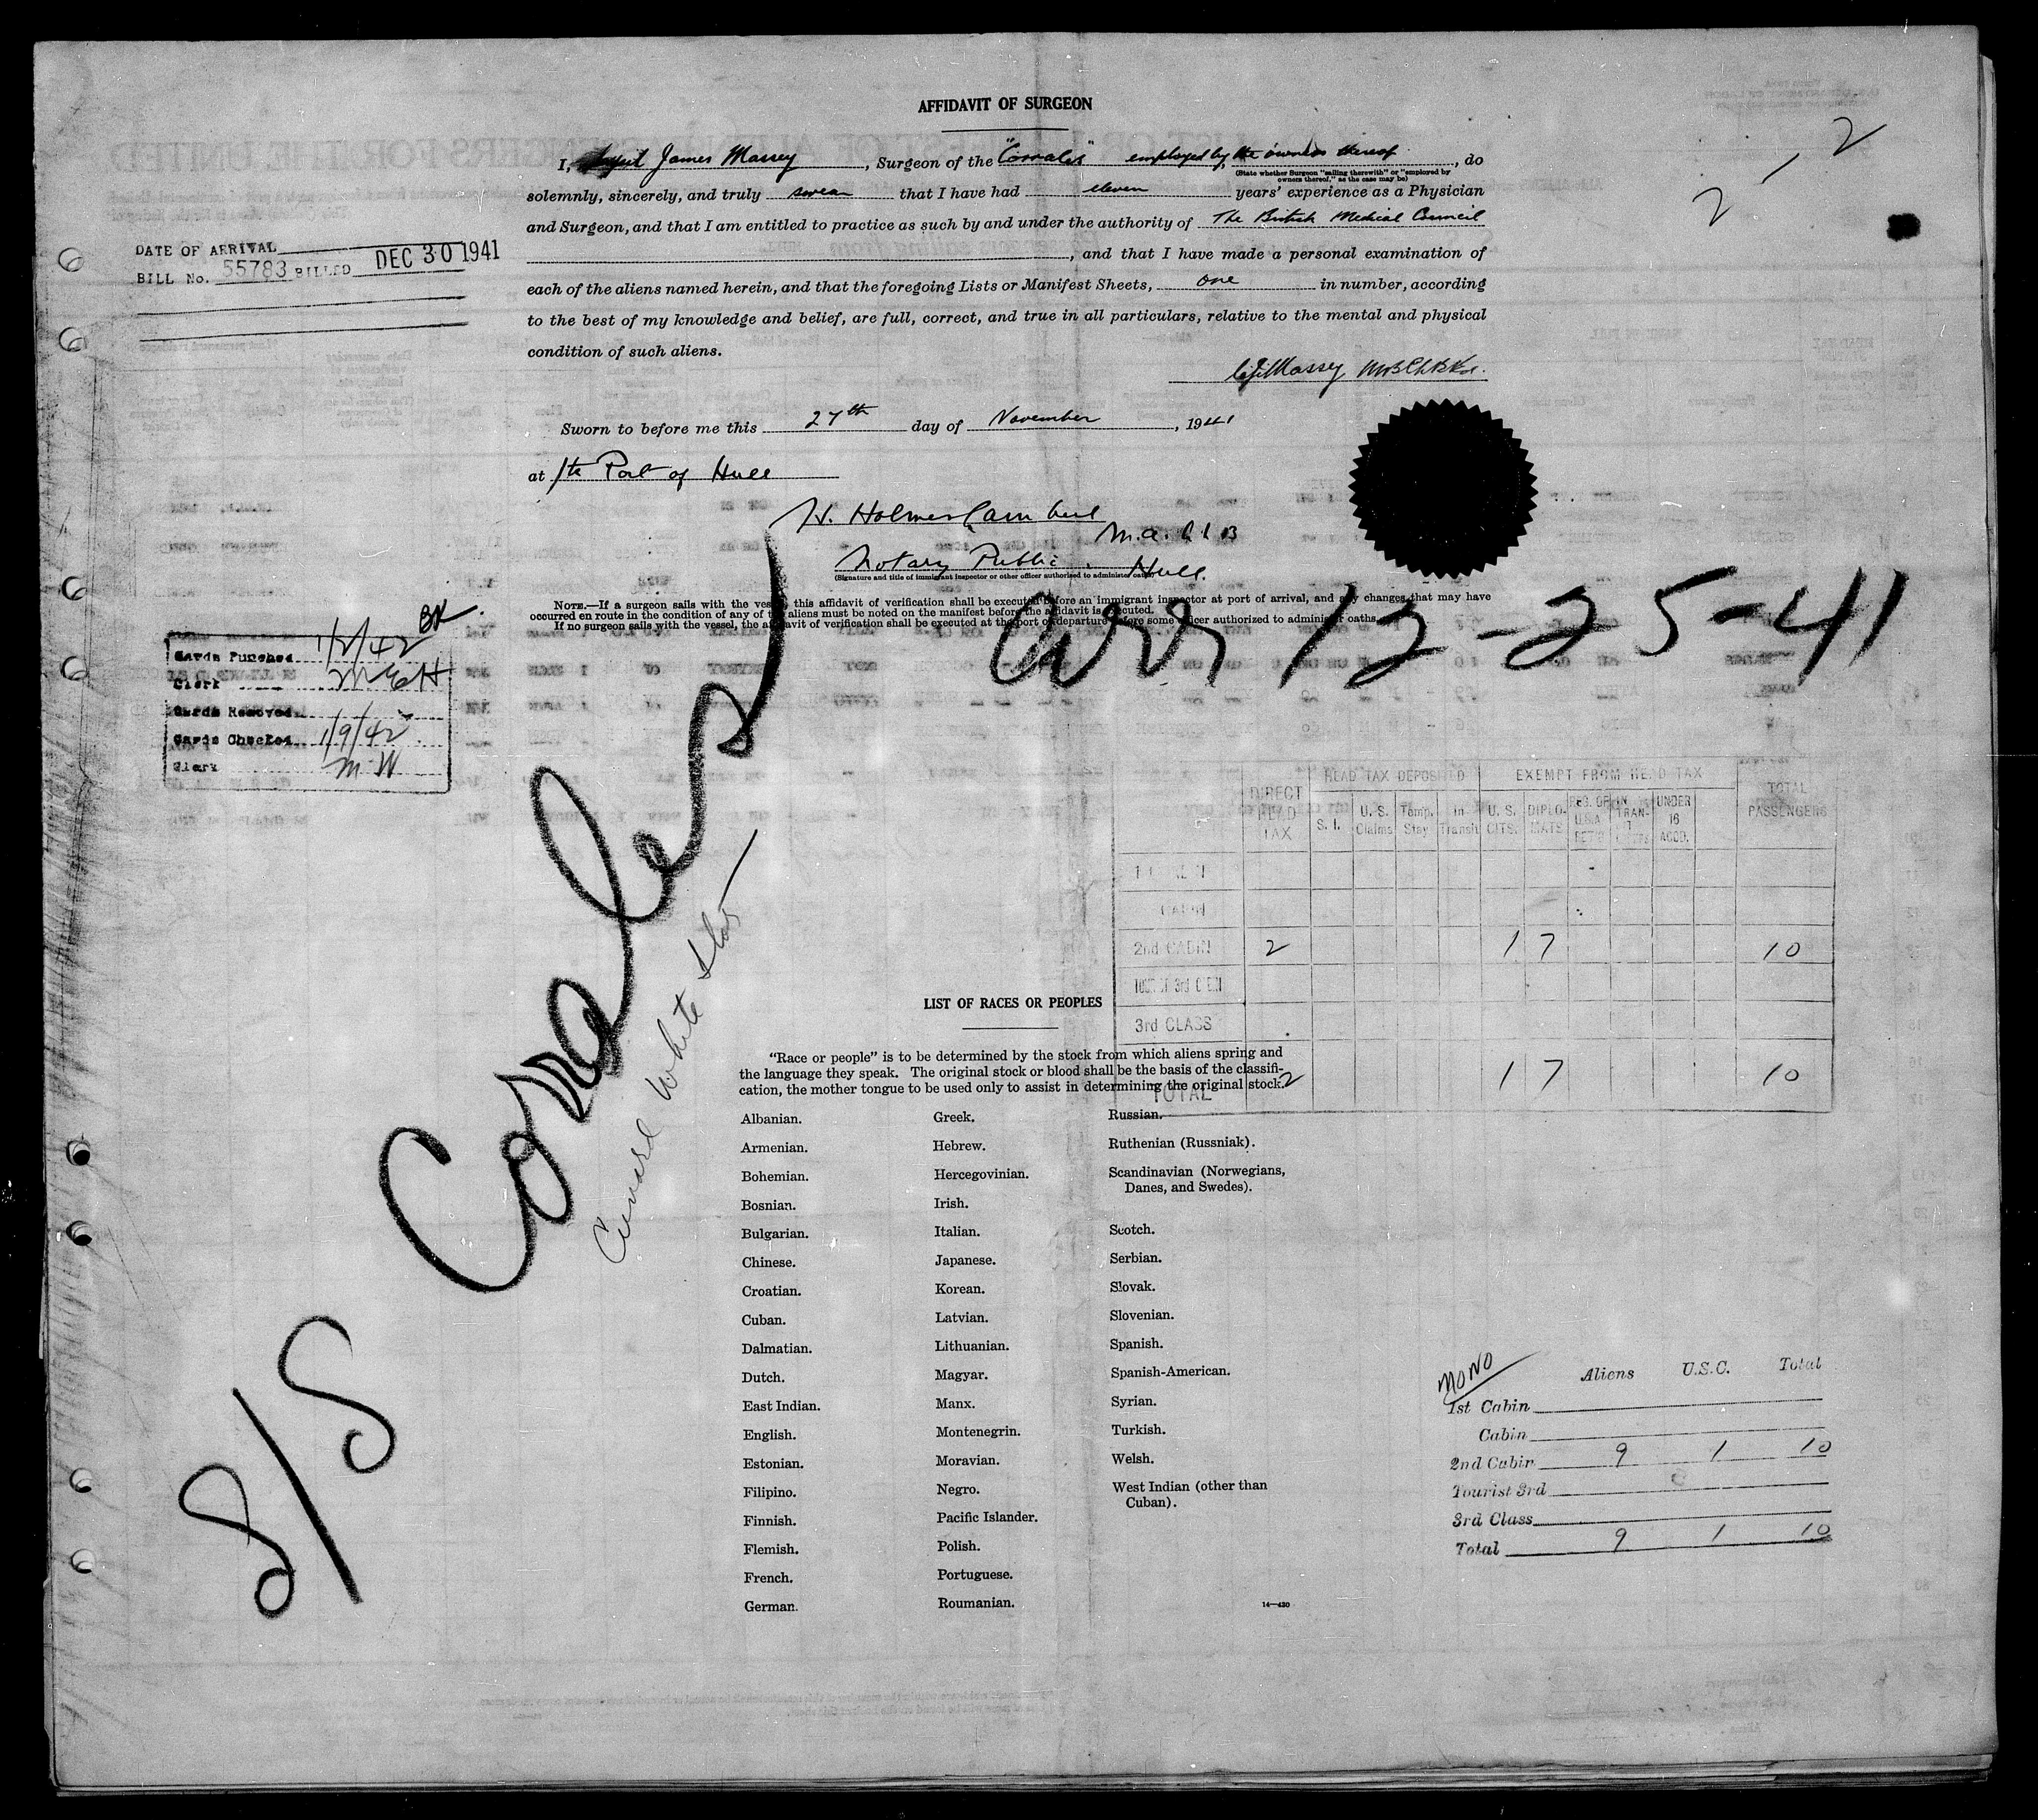 AFFIDAVIT OF SURGEON
I, James Massey, Surgeon of the "Corrales" employed by the owners thereof, do
(State whether Surgeon "sailing therewith" or "employed by
owners thereof," as the case may be)
solemnly, sincerely, and truly swear that I have had eleven years' experience as a Physician
and Surgeon, and that I am entitled to practice as such by and under the authority of The British Medical Council
, and that I have made a personal examination of
each of the aliens named herein, and that the foregoing Lists or Manifest Sheets, one in number, according
to the best of my knowledge and belief, are full, correct, and true in all particulars, relative to the mental and physical
condition of such aliens.
Massey
Sworn to before me this 27th day of November, 1941
at the Port of Hull
W. Holmes M.A.
Notary Public. Hull.
(Signature and title of immigrant inspector or other officer authorized to administer oaths)
NOTE.—If a surgeon sails with the vessel, this affidavit of verification shall be executed before an immigrant inspector at port of arrival, and any changes that may have
occurred en route in the condition of any of the aliens must be noted on the manifest before the affidavit is executed.
If no surgeon sails with the vessel, the affidavit of verification shall be executed at the port of departure before some officer authorized to administer oaths.
2 - 2
DATE OF ARRIVAL
BILL No. 55783 BILLED DEC 30 1941
BK.
Cards Punched 1/2/42
Clerk M E H
Cards Removed
Cards Checked 1/9/42
Clerk M W
arr 12-25-41
S/S Corrales
Cunard White Star
DIRECT HEAD TAX
HEAD TAX DEPOSITED
S. I. U. S. Claims Temp. Stay In Transit
EXEMPT FROM HEAD TAX
U. S. CITS. DIPLOMATS REG. OF U.S.A RET'G IN TRANT UNDER 16 ACCD.
TOTAL PASSENGERS
CABIN
2nd CABIN 2 1 7 10
3rd CLASS
TOTAL 2 1 7 10
LIST OF RACES OR PEOPLES
"Race or people" is to be determined by the stock from which aliens spring and
the language they speak. The original stock or blood shall be the basis of the classifi-
cation, the mother tongue to be used only to assist in determining the original stock.
Albanian.
Armenian.
Bohemian.
Bosnian.
Bulgarian.
Chinese.
Croatian.
Cuban.
Dalmatian.
Dutch.
East Indian.
English.
Estonian.
Filipino.
Finnish.
Flemish.
French.
German.
Greek.
Hebrew.
Hercegovinian.
Irish.
Italian.
Japanese.
Korean.
Latvian.
Lithuanian.
Magyar.
Manx.
Montenegrin.
Moravian.
Negro.
Pacific Islander.
Polish.
Portuguese.
Roumanian.
Russian.
Ruthenian (Russniak).
Scandinavian (Norwegians,
Danes, and Swedes).
Scotch.
Serbian.
Slovak.
Slovenian.
Spanish.
Spanish-American.
Syrian.
Turkish.
Welsh.
West Indian (other than
Cuban).
14—430
MONO
Aliens U.S.C. Total
1st Cabin
Cabin
2nd Cabin 9 1 10
Tourist 3rd
3rd Class
Total 9 1 10